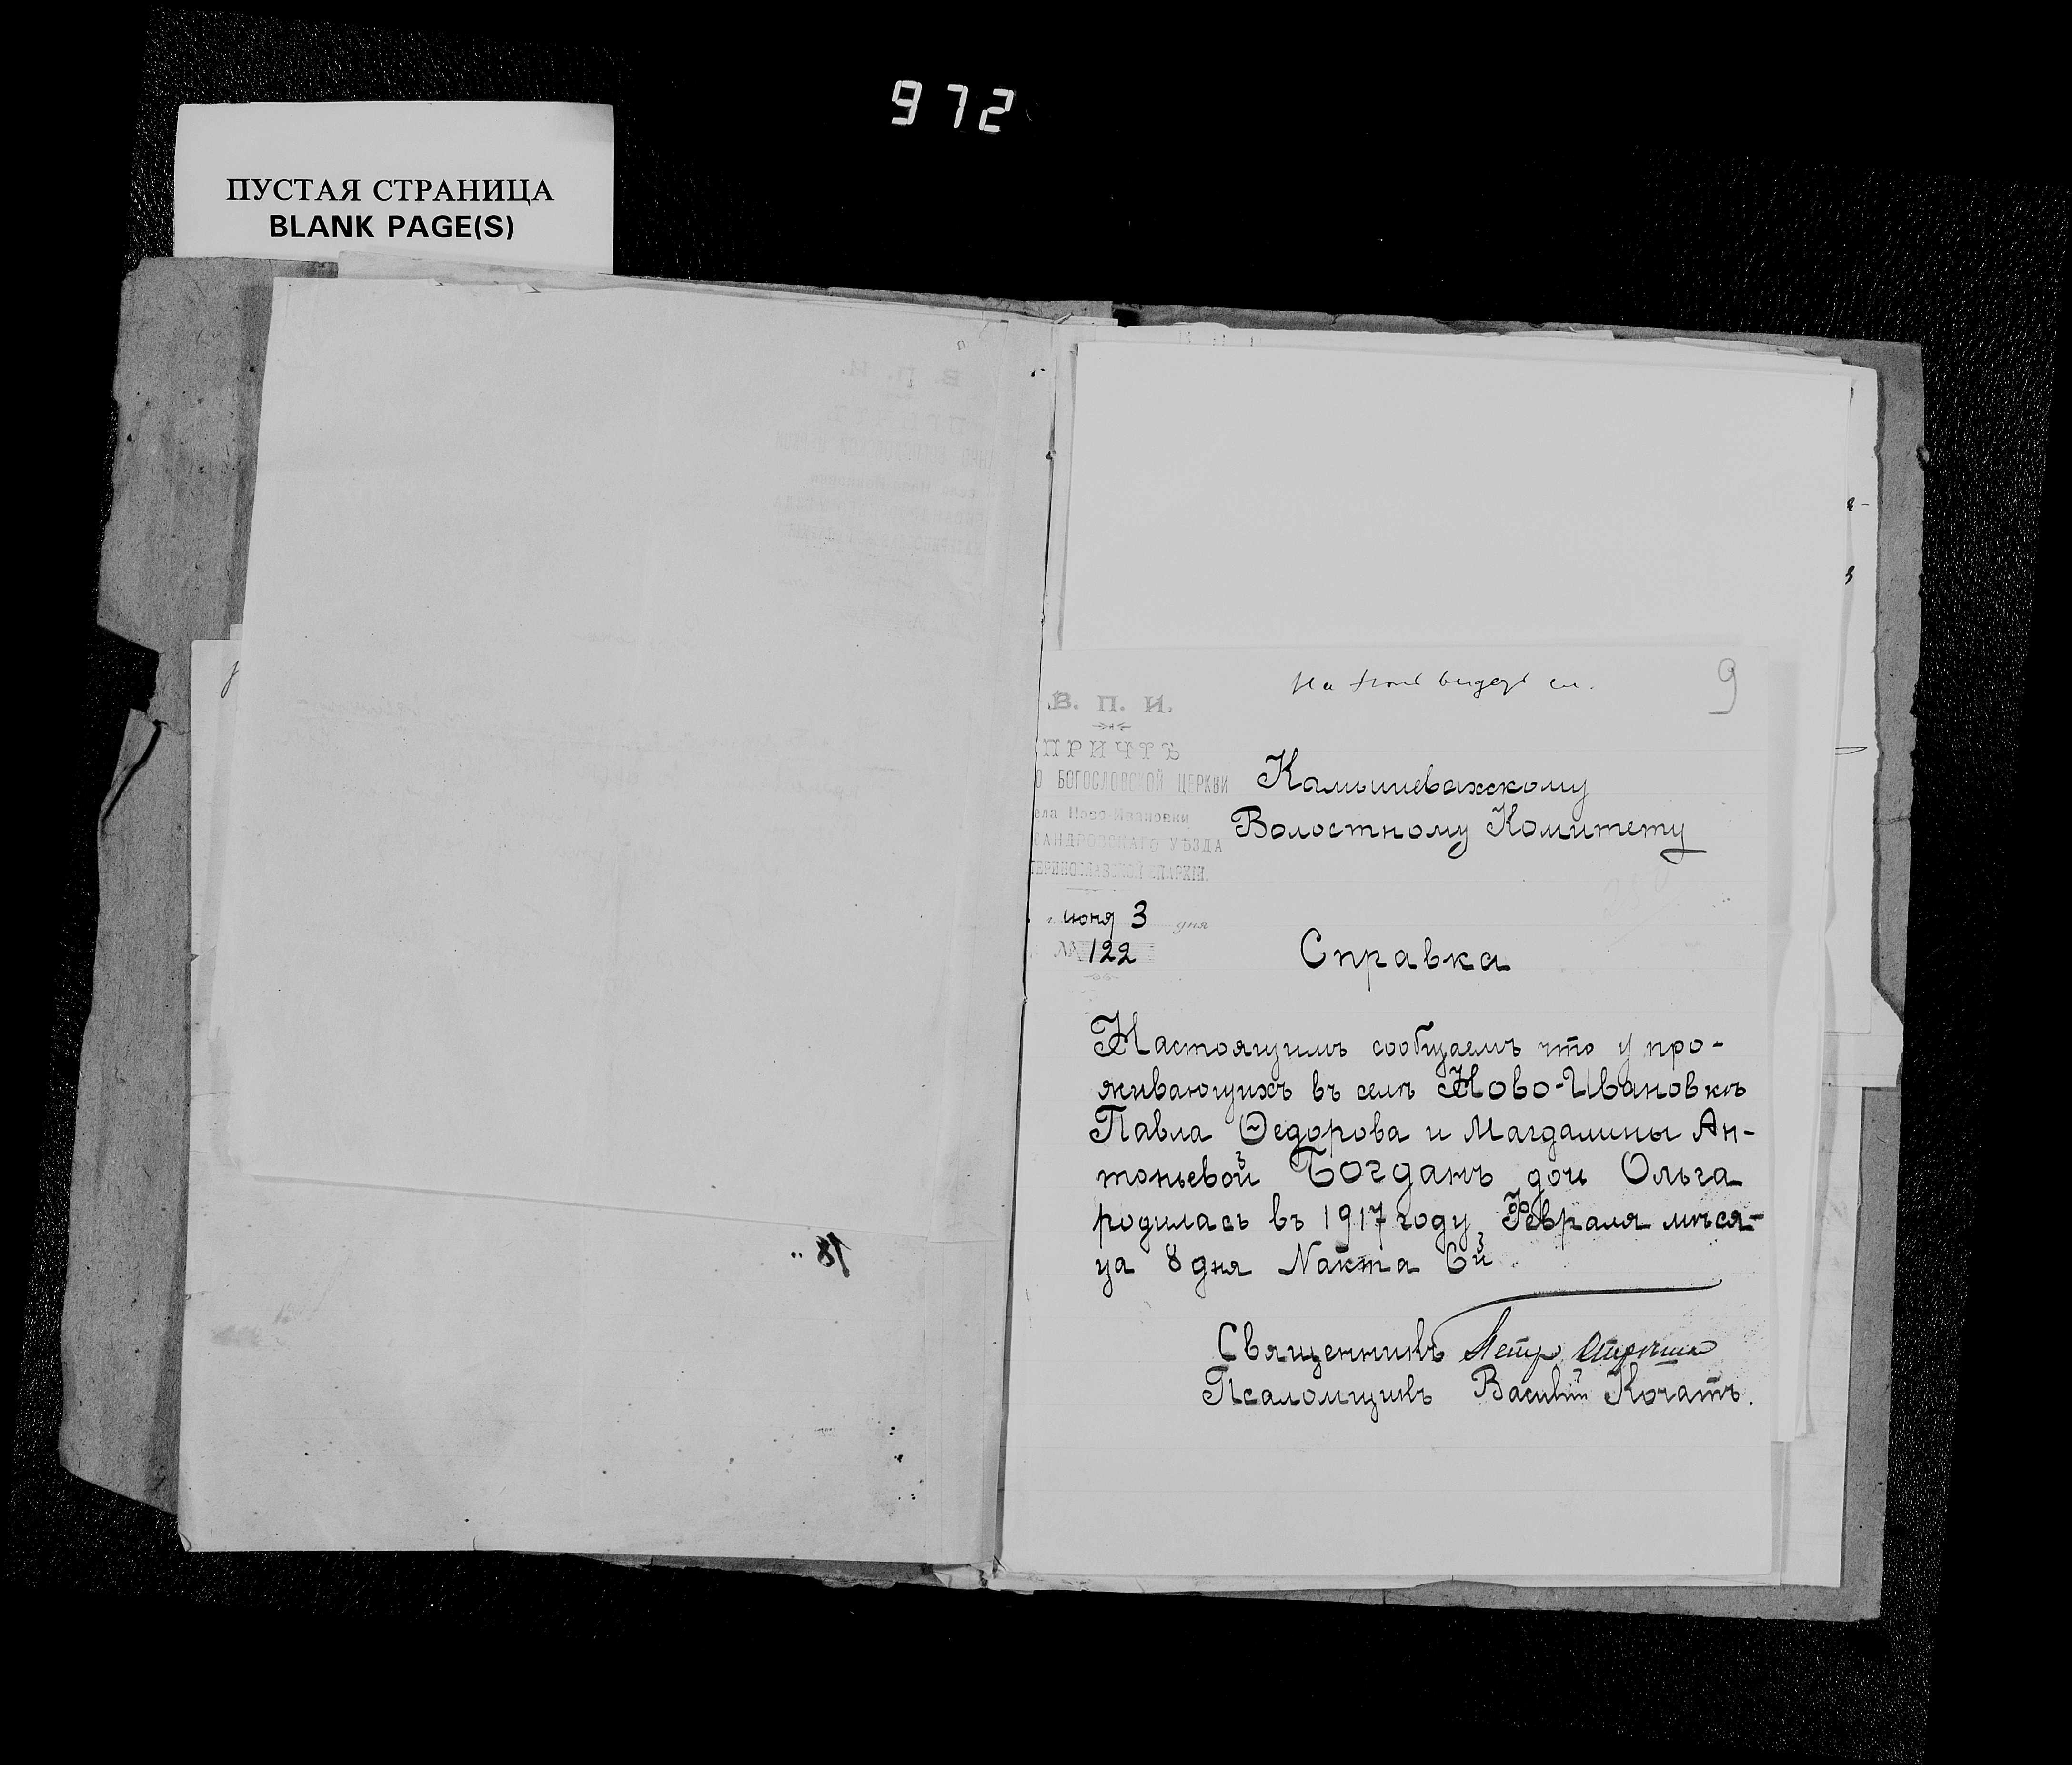 972
ПУСТАЯ СТРАНИЦА
BLANK PAGE(S)
9
В. П. И.
ПРИЧТЪ
О БОГОСЛОВСКОЙ ЦЕРКВИ
ела Ново-Ивановки
САНДРОВСКАГО УѢЗДА
ТЕРИНОСЛАВСКОЙ ЕПАРХІИ.
г. июня 3 дня
№ 122
Камышевахскому
Волостному Комитету
Справка
Настоящимъ сообщаемъ что у про-
живающихъ въ селѣ Ново-Ивановкѣ
Павла Ѳедорова и Магдалины Ан-
тоньевой Богданъ дочь Ольга
родилась въ 1917 году Февраля мѣся-
ца 8 дня №акта 6й.
Священникъ Петръ
Псаломщикъ Василій Кочатъ.